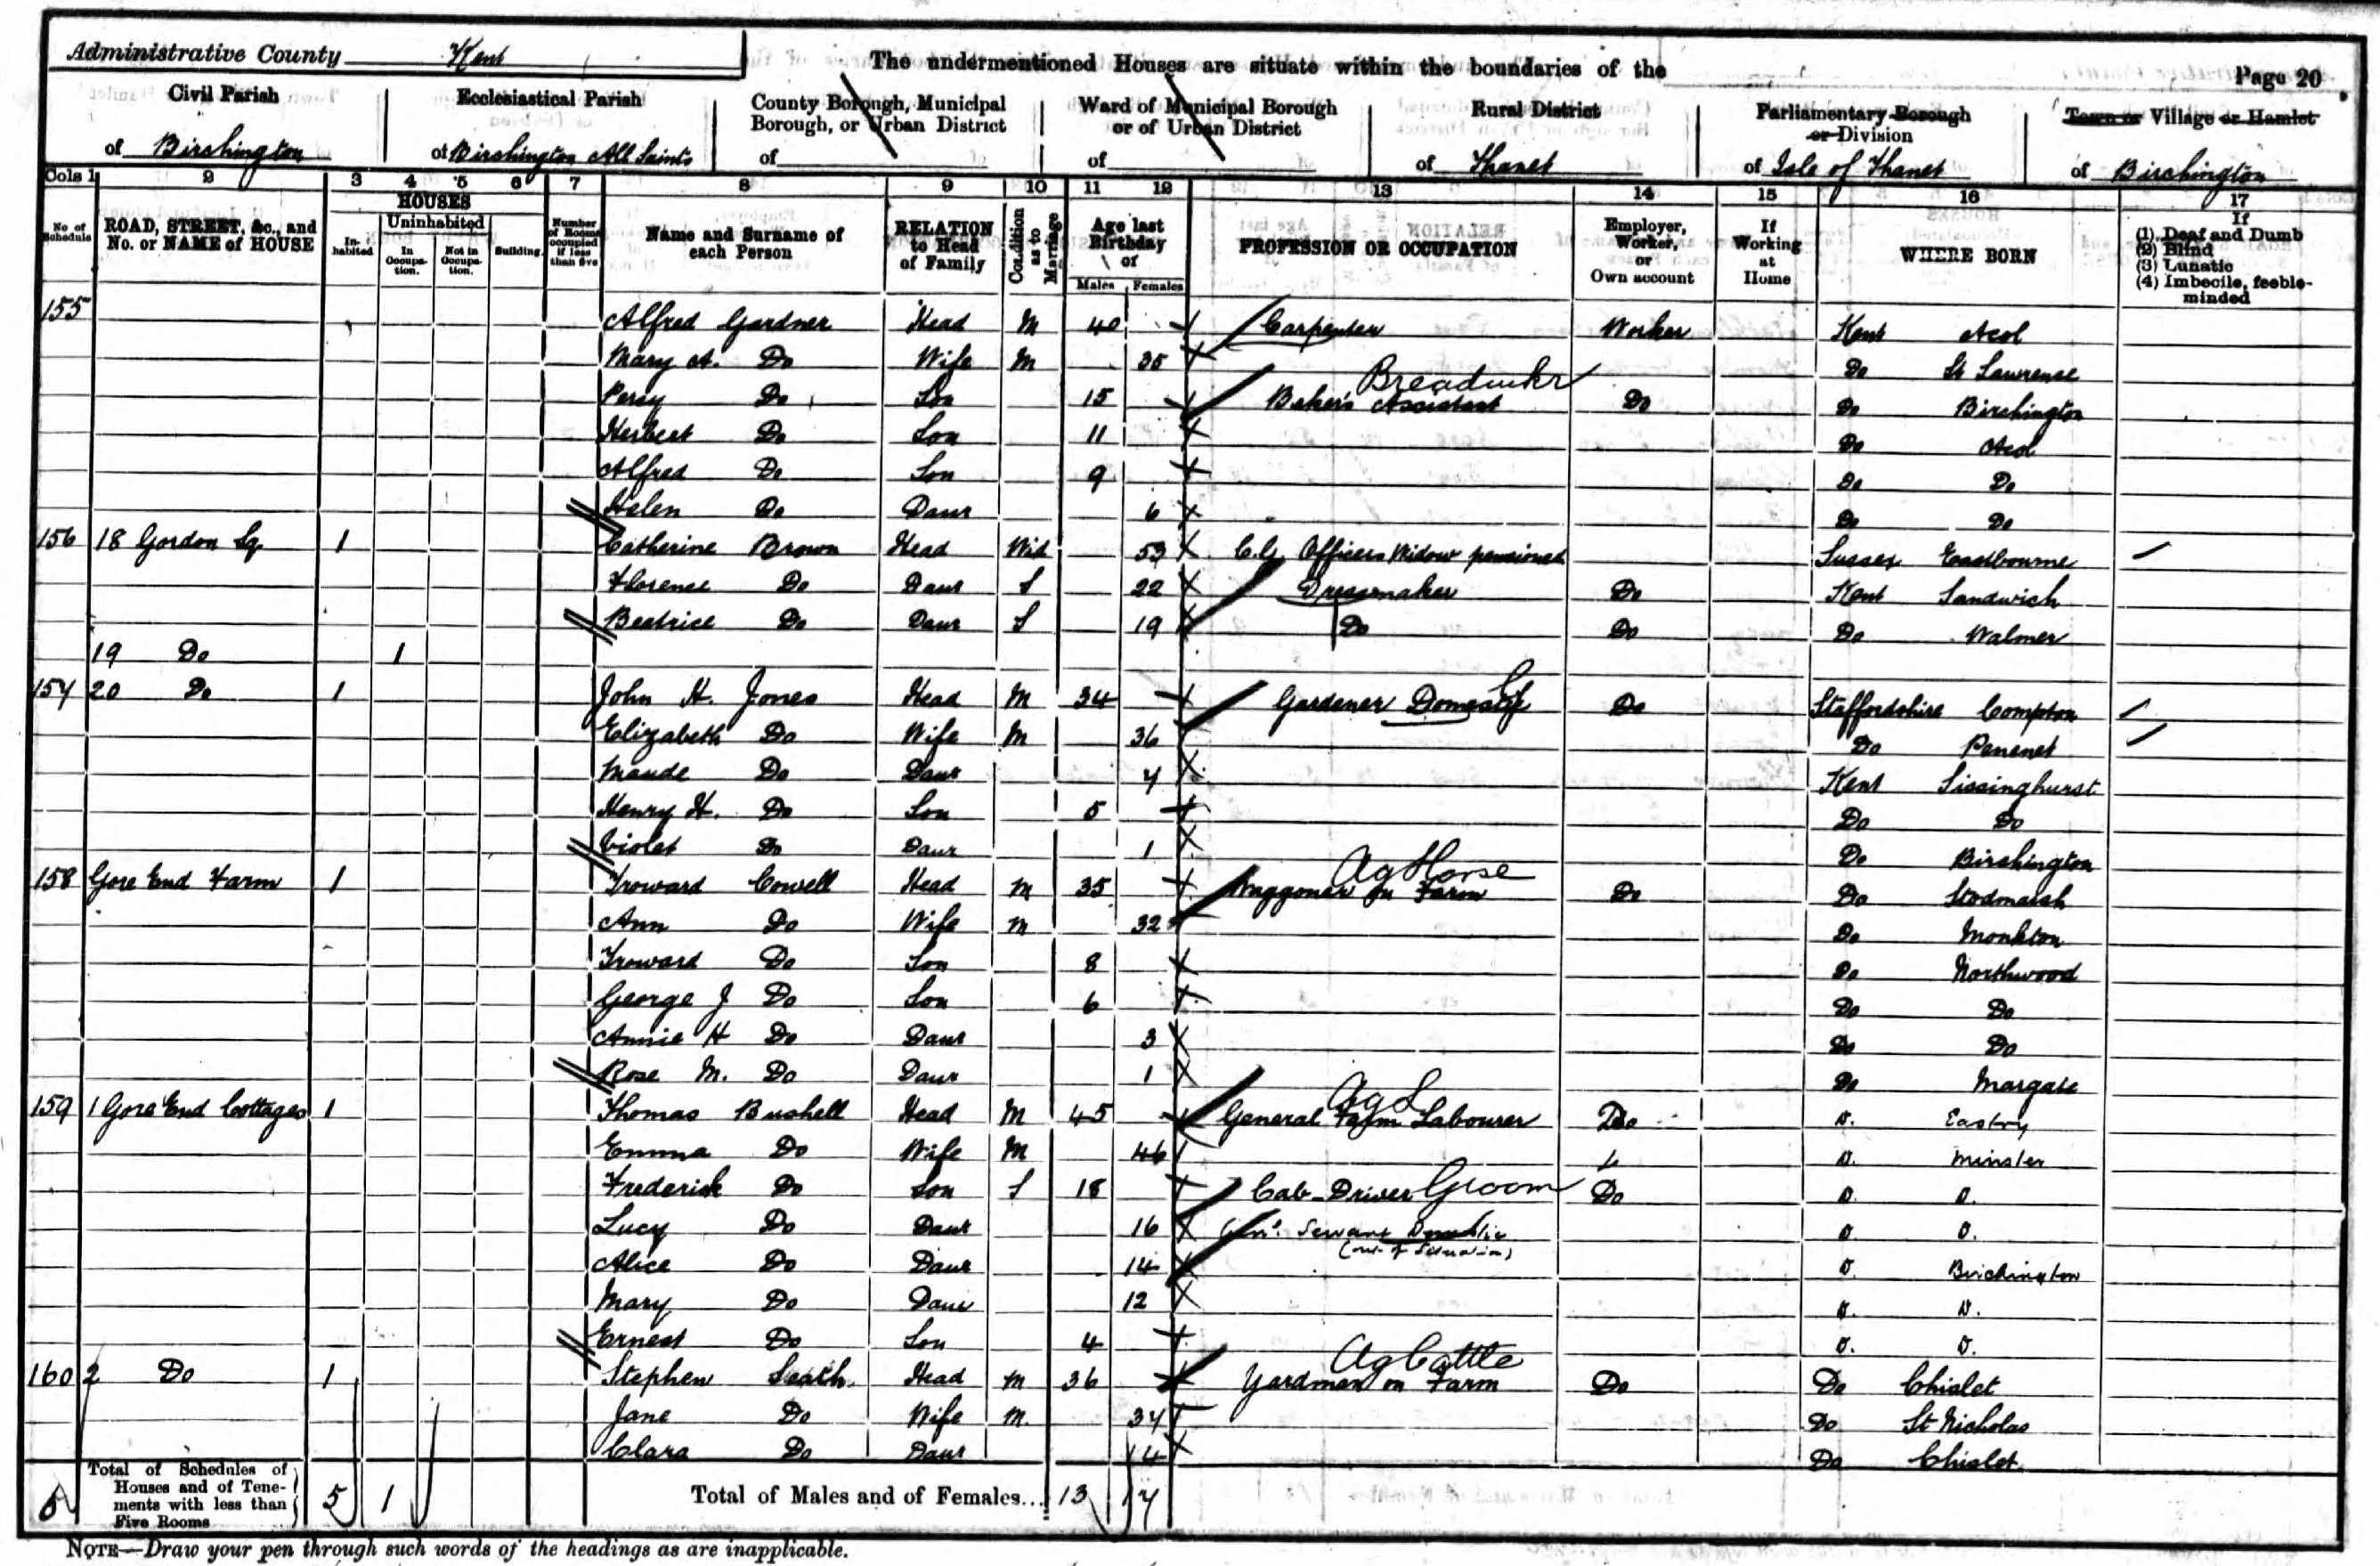 Administrative County Kent
The undermentioned Houses are situate within the boundaries of the
Page 20
Civil Parish
of Birchington
Ecclesiastical Parish
of Birchington All Saints
County Borough, Municipal Borough, or Urban District
of
Ward of Municipal Borough or of Urban District
of
Rural District
of Thanet
Parliamentary Borough or Division
of Isle of Thanet
Town or Village or Hamlet
of Birchington
Cols 1 2 3 4 5 6 7 8 9 10 11 12 13 14 15 16 17
No of Schedule
ROAD, STREET, &c., and No. or NAME of HOUSE
HOUSES
Inhabited
Uninhabited
In Occupation.
Not in Occupation.
Building.
Number of Rooms occupied if less than five
Name and Surname of each Person
RELATION to Head of Family
Condition as to Marriage
Age last Birthday of
Males Females
PROFESSION OR OCCUPATION
Employer, Worker, or Own account
If Working at Home
WHERE BORN
If
(1) Deaf and Dumb
(2) Blind
(3) Lunatic
(4) Imbecile, feeble-minded
155 Alfred Gardner Head M 40 Carpenter Worker Kent Acol
Mary A. Do Wife M 35 Do St Lawrence
Percy Do Son 15 Baker's Assistant Do Do Birchington
Herbert Do Son 11 Do Acol
Alfred Do Son 9 Do Do
Helen Do Daur 6 Do Do
156 18 Gordon Sq. 1 Catherine Brown Head Wid 53 C.G. Officers Widow pensioned Sussex Eastbourne
Florence Do Daur S 22 Dressmaker Do Kent Sandwich
Beatrice Do Daur S 19 Do Do Do Walmer
19 Do 1
157 20 Do 1 John H. Jones Head M 34 Gardener Domestic Do Staffordshire Compton
Elizabeth Do Wife M 36 Do
Maude Do Daur 7 Kent Sissinghurst
Henry H. Do Son 5 Do Do
Violet Do Daur 1 Do Birchington
158 Gore End Farm 1 Troward Cowell Head M 35 Waggoner on Farm Ag Horse Do Do Stodmarsh
Ann Do Wife M 32 Do Monkton
Troward Do Son 8 Do Northwood
George J Do Son 6 Do Do
Annie H Do Daur 3 Do Do
Rose M. Do Daur 1 Do Margate
159 1 Gore End Cottages 1 Thomas Bushell Head M 45 General Farm Labourer Ag L Do D. Eastry
Emma Do Wife M 46 D. Minster
Frederick Do Son S 18 Cab-Driver Groom Do D. D.
Lucy Do Daur 16 Genl. Servant Domestic (out of Situation) D D.
Alice Do Daur 14 D. Birchington
Mary Do Daur 12 D. D.
Ernest Do Son 4 D. D.
160 2 Do 1 Stephen Seath Head M 36 Yardman on Farm Ag Cattle Do Do Chislet
Jane Do Wife M. 37 Do St Nicholas
Clara Do Daur 14 Do Chislet
Total of Schedules of Houses and of Tenements with less than Five Rooms 5 1
Total of Males and of Females... 13 17
NOTE—Draw your pen through such words of the headings as are inapplicable.